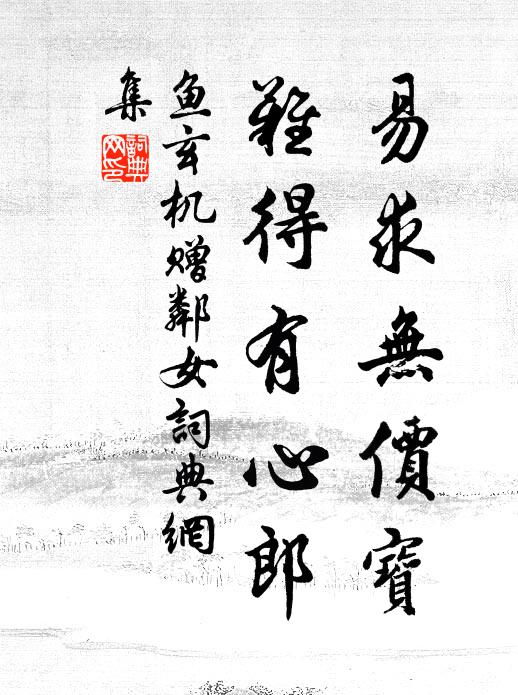 易求無價寶
難得有心郎
鱼玄机赠鄰女詞典網
集
詞典
网印